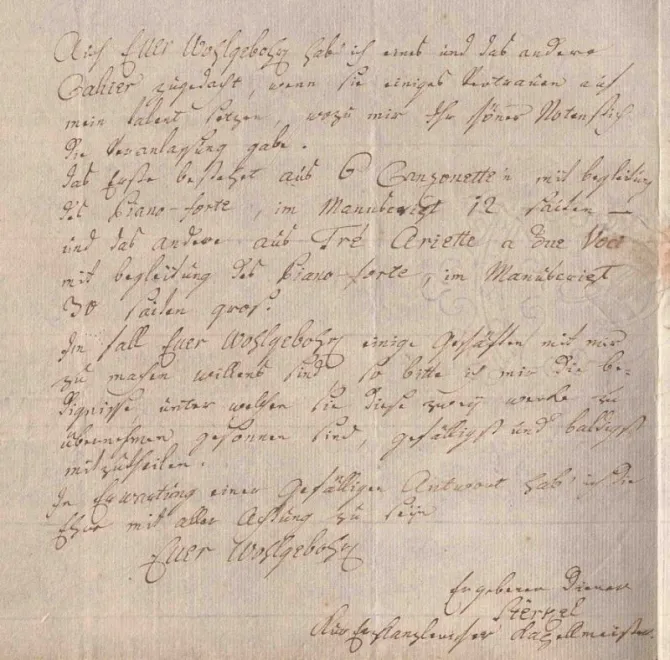 Auch Euer Wohlgebohrn hab ich eines und das andere
Cahier zugedacht, wenn sie einiges Vertrauen auf
mein talent setzen, wozu mir Ihr schöner Notenstich
die Veranlassung gabe.
das Erste bestehet aus 6 Canzonette'n mit begleitung
des Piano-forte, im Manuscript 12 saiten —
und das andere aus Tré Ariette a due Voci
mit begleitung des Piano-forte, im Manuscript
30 saiten gros.
Im fall Euer Wohlgebohrn einige Geschäften mit mir
zu machen willens sind so bitte ich mir die be-
dignisse unter welchen sie diese zwey werke zu
übernehmen gesonnen sind, gefälligst und baldigst
mitzutheilen.
In Erwartung einer Gefälligen Antwort hab ich die
Ehre mit aller Achtung zu sein
Euer Wohlgebohrn
Ergebener Diener
Sterkel
Kapellmeister.